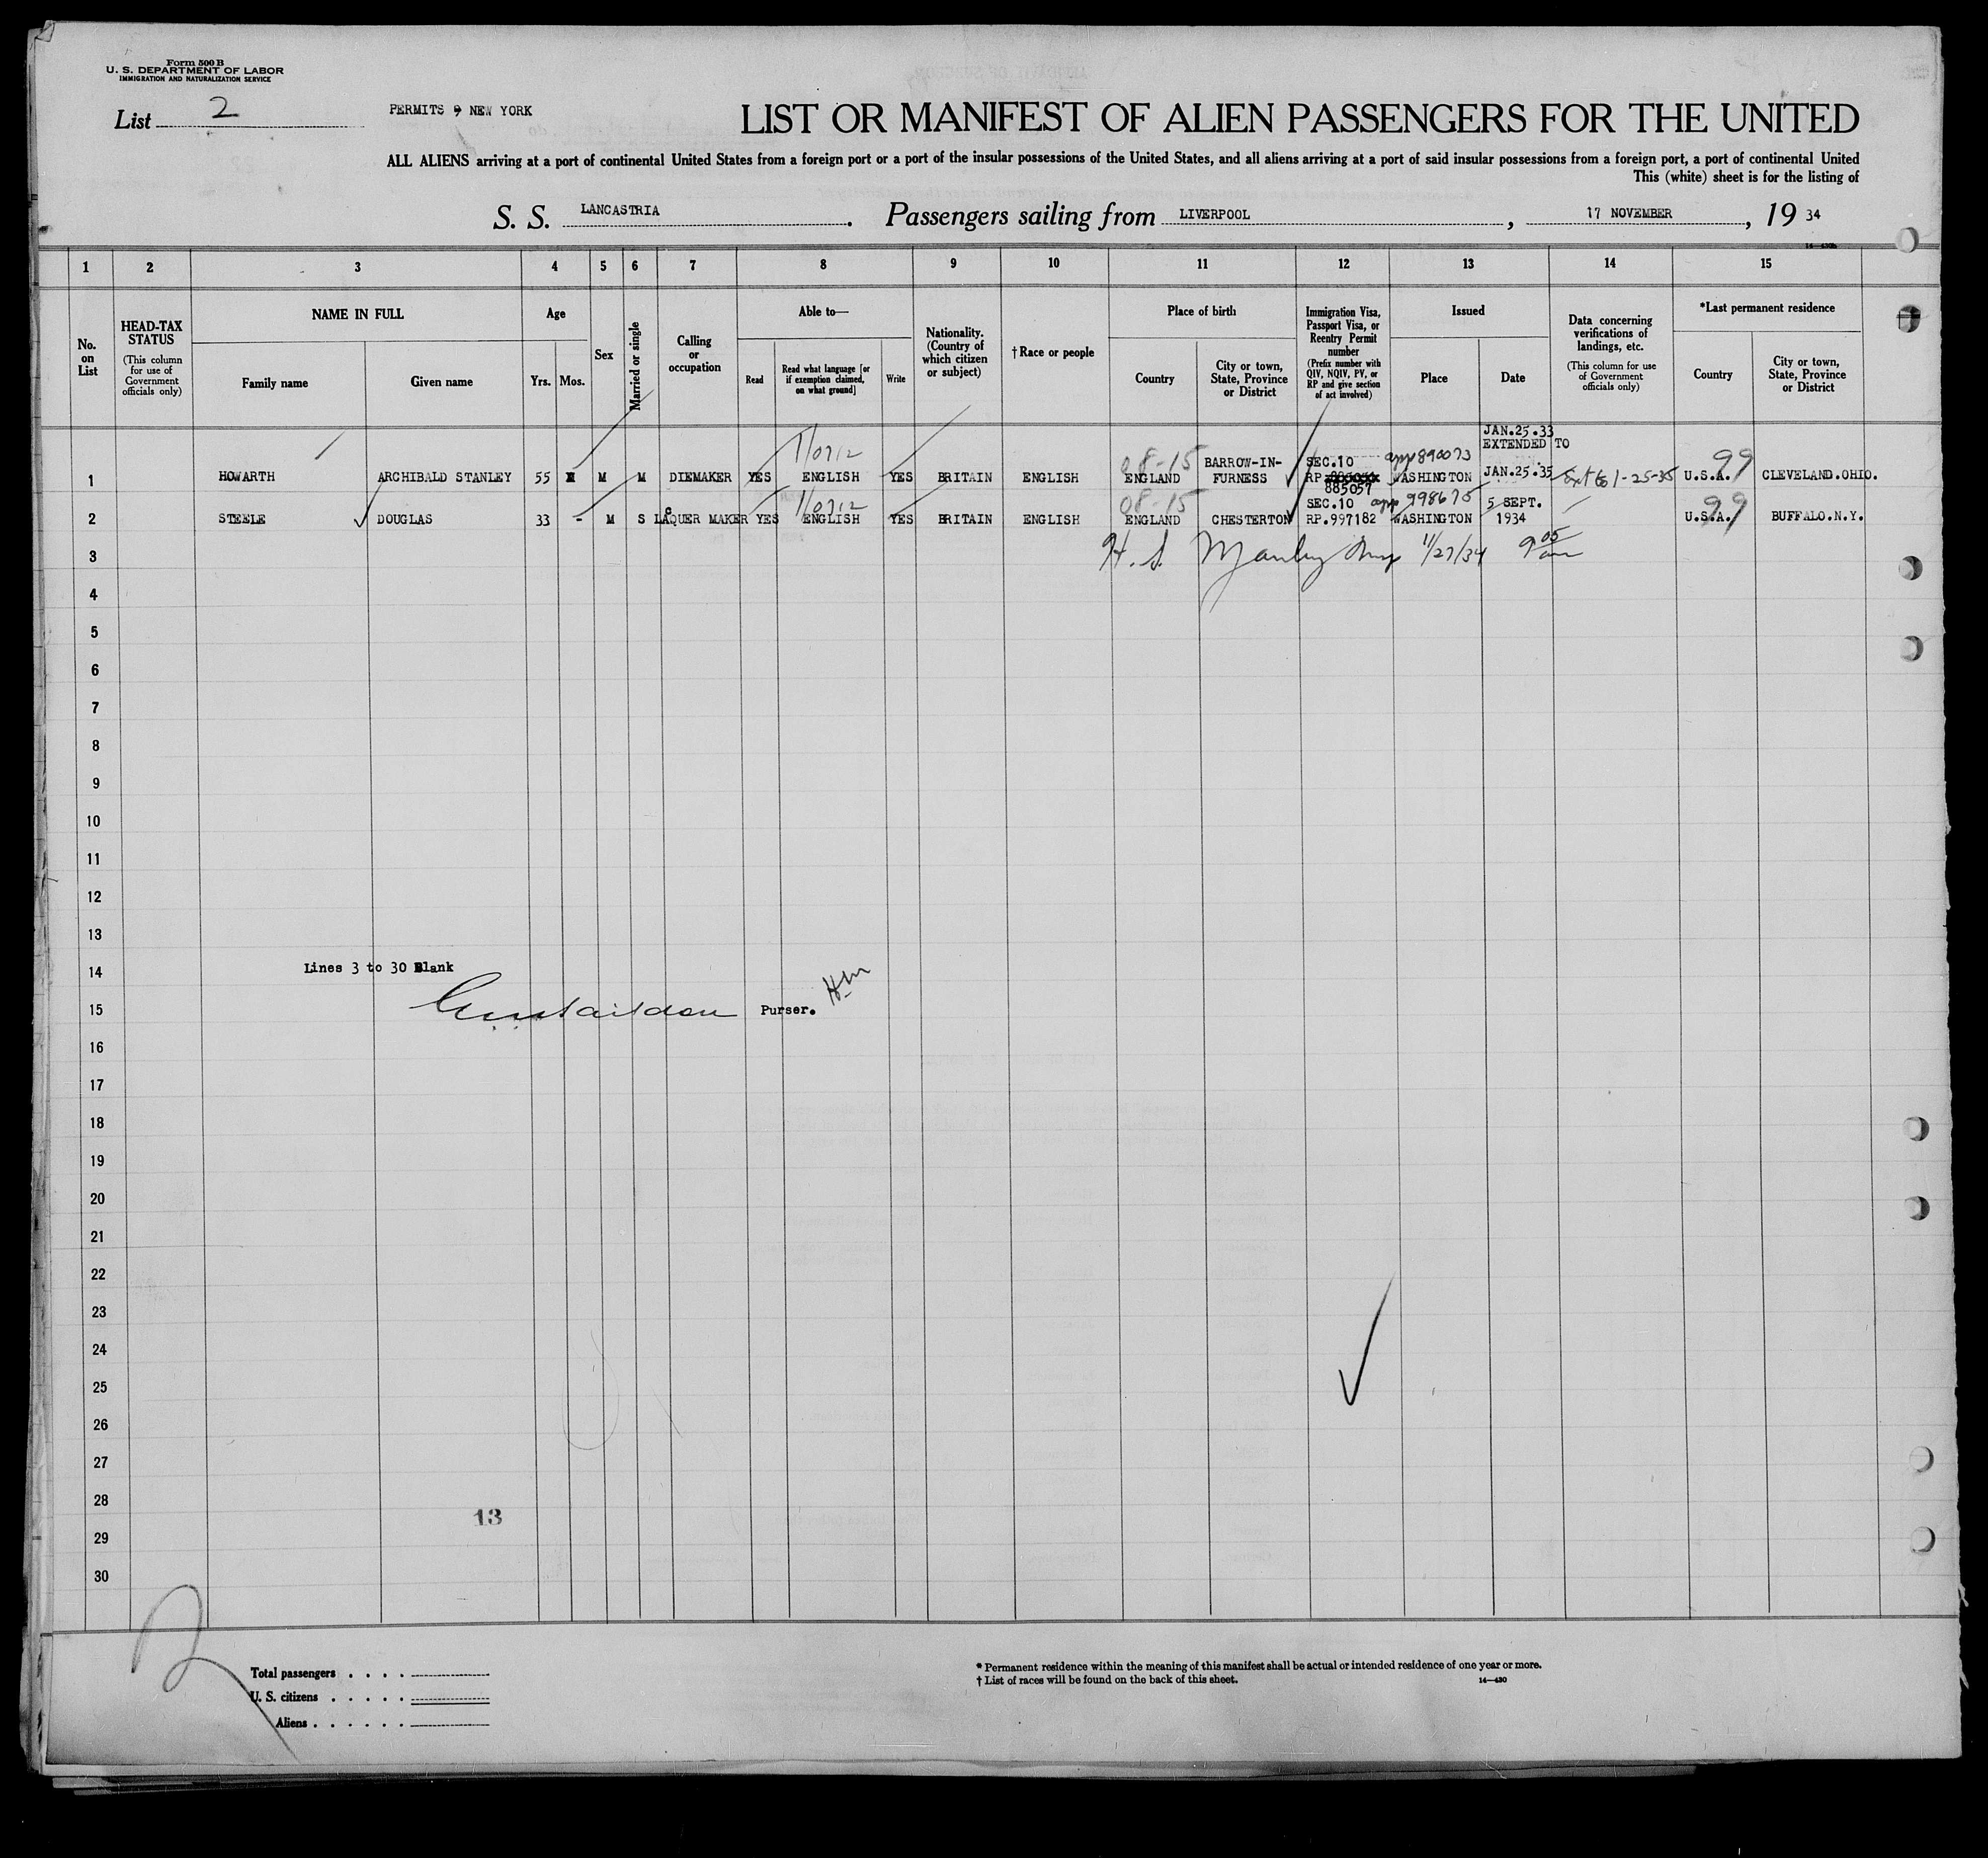 Form 500 B
U. S. DEPARTMENT OF LABOR
IMMIGRATION AND NATURALIZATION SERVICE
List 2
PERMITS 9 NEW YORK
LIST OR MANIFEST OF ALIEN PASSENGERS FOR THE UNITED
ALL ALIENS arriving at a port of continental United States from a foreign port or a port of the insular possessions of the United States, and all aliens arriving at a port of said insular possessions from a foreign port, a port of continental United
This (white) sheet is for the listing of
S. S. LANCASTRIA. Passengers sailing from LIVERPOOL, 17 NOVEMBER, 19 34
14—430b
1 2 3 4 5 6 7 8 9 10 11 12 13 14 15
No. on List
HEAD-TAX STATUS
(This column for use of Government officials only)
NAME IN FULL
Family name
Given name
Age
Yrs.
Mos.
Sex
Married or single
Calling or occupation
Able to—
Read
Read what language [or if exemption claimed, on what ground]
Write
Nationality. (Country of which citizen or subject)
† Race or people
Place of birth
Country
City or town, State, Province or District
Immigration Visa, Passport Visa, or Reentry Permit number
(Prefix number with QIV, NQIV, PV, or RP and give section of act involved)
Issued
Place
Date
Data concerning verifications of landings, etc.
(This column for use of Government officials only)
*Last permanent residence
Country
City or town, State, Province or District
JAN.25.33
EXTENDED TO
08-15 BARROW-IN- SEC.10 app 890073 99
1 HOWARTH ARCHIBALD STANLEY 55 M M DIEMAKER YES ENGLISH YES BRITAIN ENGLISH ENGLAND FURNESS RP 885057 WASHINGTON JAN.25.35 Ext to 1-25-35 U.S.A. CLEVELAND.OHIO.
08-15 SEC.10 app 998675 5 SEPT. 99
2 STEELE DOUGLAS 33 - M S LACQUER MAKER YES ENGLISH YES BRITAIN ENGLISH ENGLAND CHESTERTON RP.997182 WASHINGTON 1934 U.S.A. BUFFALO.N.Y.
3 H. S. Manley Insp 11/27/34 9 05 am
4
5
6
7
8
9
10
11
12
13
14 Lines 3 to 30 Blank
15 Purser. HM
16
17
18
19
20
21
22
23
24
25
26
27
28
13
29
30
2
Total passengers . . . .
U. S. citizens . . . . .
Aliens . . . . . .
* Permanent residence within the meaning of this manifest shall be actual or intended residence of one year or more.
† List of races will be found on the back of this sheet.
14—430